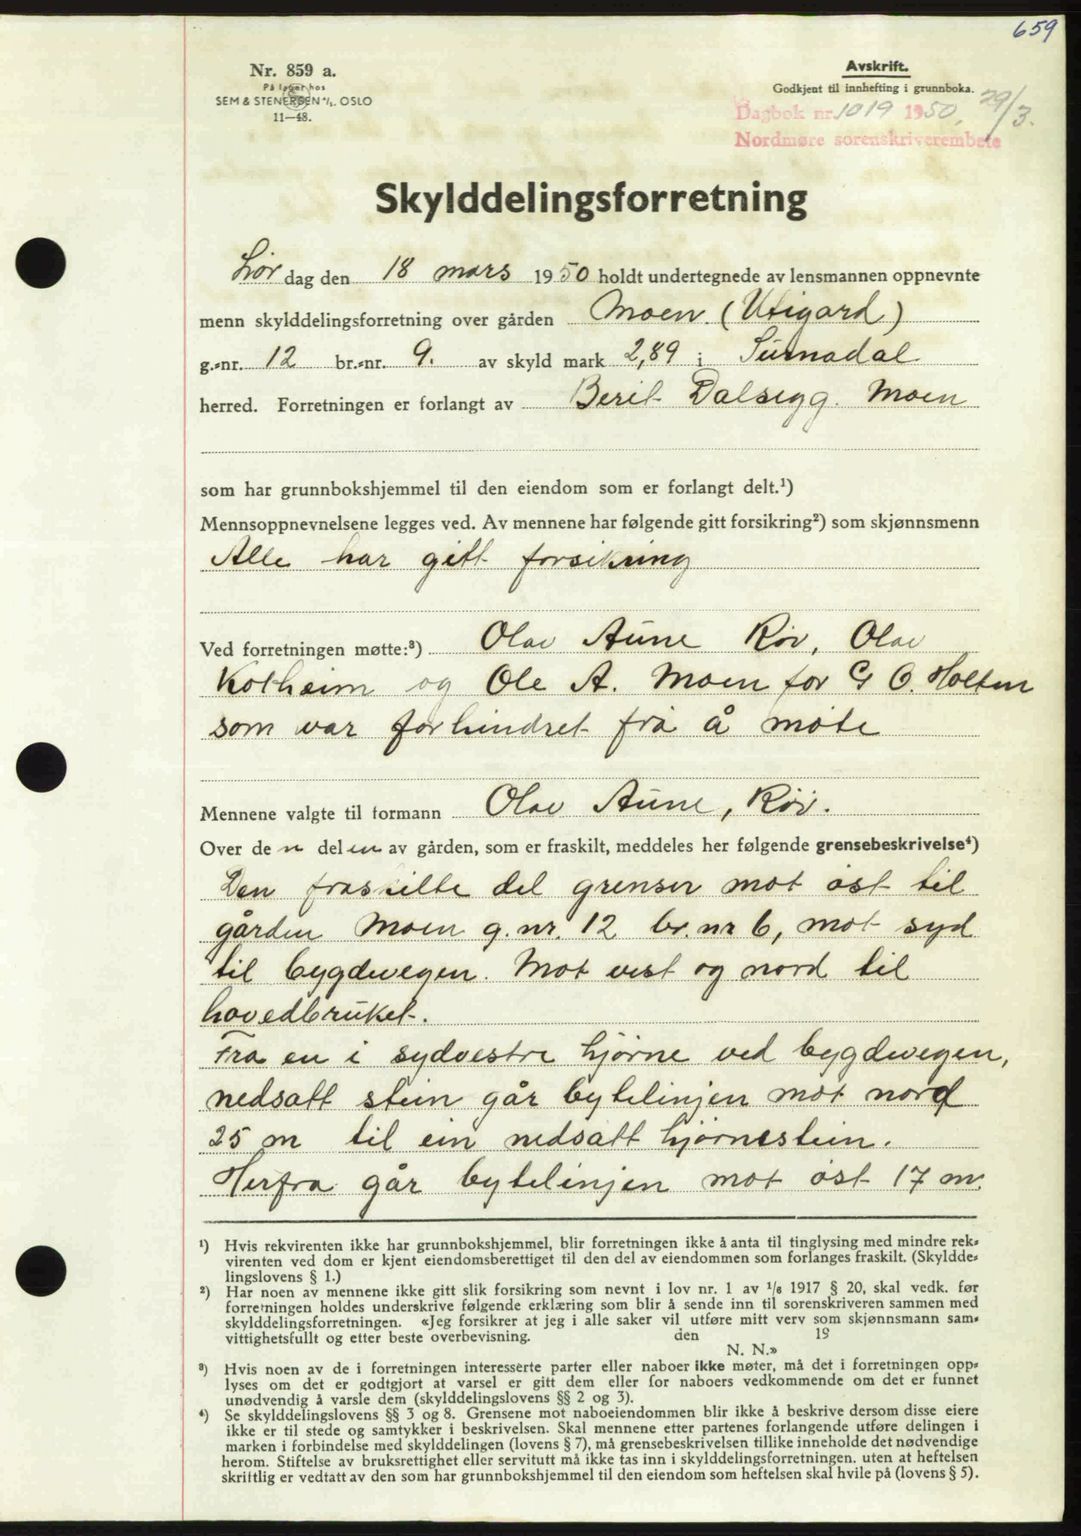 659
Nr. 859 a.
På lager hos
SEM & STENERSEN A/S. OSLO
11—48.
Avskrift.
Godkjent til innhefting i grunnboka.
Dagbok nr. 1019 1950, 29/3.
Nordmøre sorenskriverembete
Skylddelingsforretning
Lør dag den 18 mars 1950 holdt undertegnede av lensmannen oppnevnte
menn skylddelingsforretning over gården Moen (Utigard)
g.-nr. 12 br.-nr. 9. av skyld mark 2,89 i Surnadal
herred. Forretningen er forlangt av Berit Dalsegg. Moen
som har grunnbokshjemmel til den eiendom som er forlangt delt.¹)
Mennsoppnevnelsene legges ved. Av mennene har følgende gitt forsikring²) som skjønnsmenn
Alle har gitt forsikring
Ved forretningen møtte:³) Olav Aune Røv, Olav
Kotheim og Ole A. Moen for G O. Holten
som var forhindret fra å møte
Mennene valgte til formann Olav Aune, Røv.
Over de n del en av gården, som er fraskilt, meddeles her følgende grensebeskrivelse⁴)
Den fraskilte del grenser mot øst til
gården Moen g. nr. 12 br. nr 6, mot syd
til bygdevegen. Mot vest og nord til
hovedbruket.
Fra en i sydvestre hjørne ved bygdevegen,
nedsatt stein går bytelinjen mot nord
25 m til ein nedsatt hjørnestein.
Herfra går bytelinjen mot øst 17 m.
¹) Hvis rekvirenten ikke har grunnbokshjemmel, blir forretningen ikke å anta til tinglysing med mindre rek-
virenten ved dom er kjent eiendomsberettiget til den del av eiendommen som forlanges fraskilt. (Skyldde-
lingslovens § 1.)
²) Har noen av mennene ikke gitt slik forsikring som nevnt i lov nr. 1 av 1/6 1917 § 20, skal vedk. før
forretningen holdes underskrive følgende erklæring som blir å sende inn til sorenskriveren sammen med
skylddelingsforretningen. «Jeg forsikrer at jeg i alle saker vil utføre mitt verv som skjønnsmann sam-
vittighetsfullt og etter beste overbevisning. den 19
N. N.»
³) Hvis noen av de i forretningen interesserte parter eller naboer ikke møter, må det i forretningen opp-
lyses om det er godtgjort at varsel er gitt dem eller for naboers vedkommende om det er funnet
unødvendig å varsle dem (skylddelingslovens §§ 2 og 3).
⁴) Se skylddelingslovens §§ 3 og 8. Grensene mot naboeiendommen blir ikke å beskrive dersom disse eiere
ikke er til stede og samtykker i beskrivelsen. Skal mennene etter partenes forlangende utføre delingen i
marken i forbindelse med skylddelingen (lovens § 7), må grensebeskrivelsen tillike inneholde det nødvendige
herom. Stiftelse av bruksrettighet eller servitutt må ikke tas inn i skylddelingsforretningen, uten at heftelsen
skriftlig er vedtatt av den som har grunnbokshjemmel til den eiendom som heftelsen skal hvile på (lovens § 5).